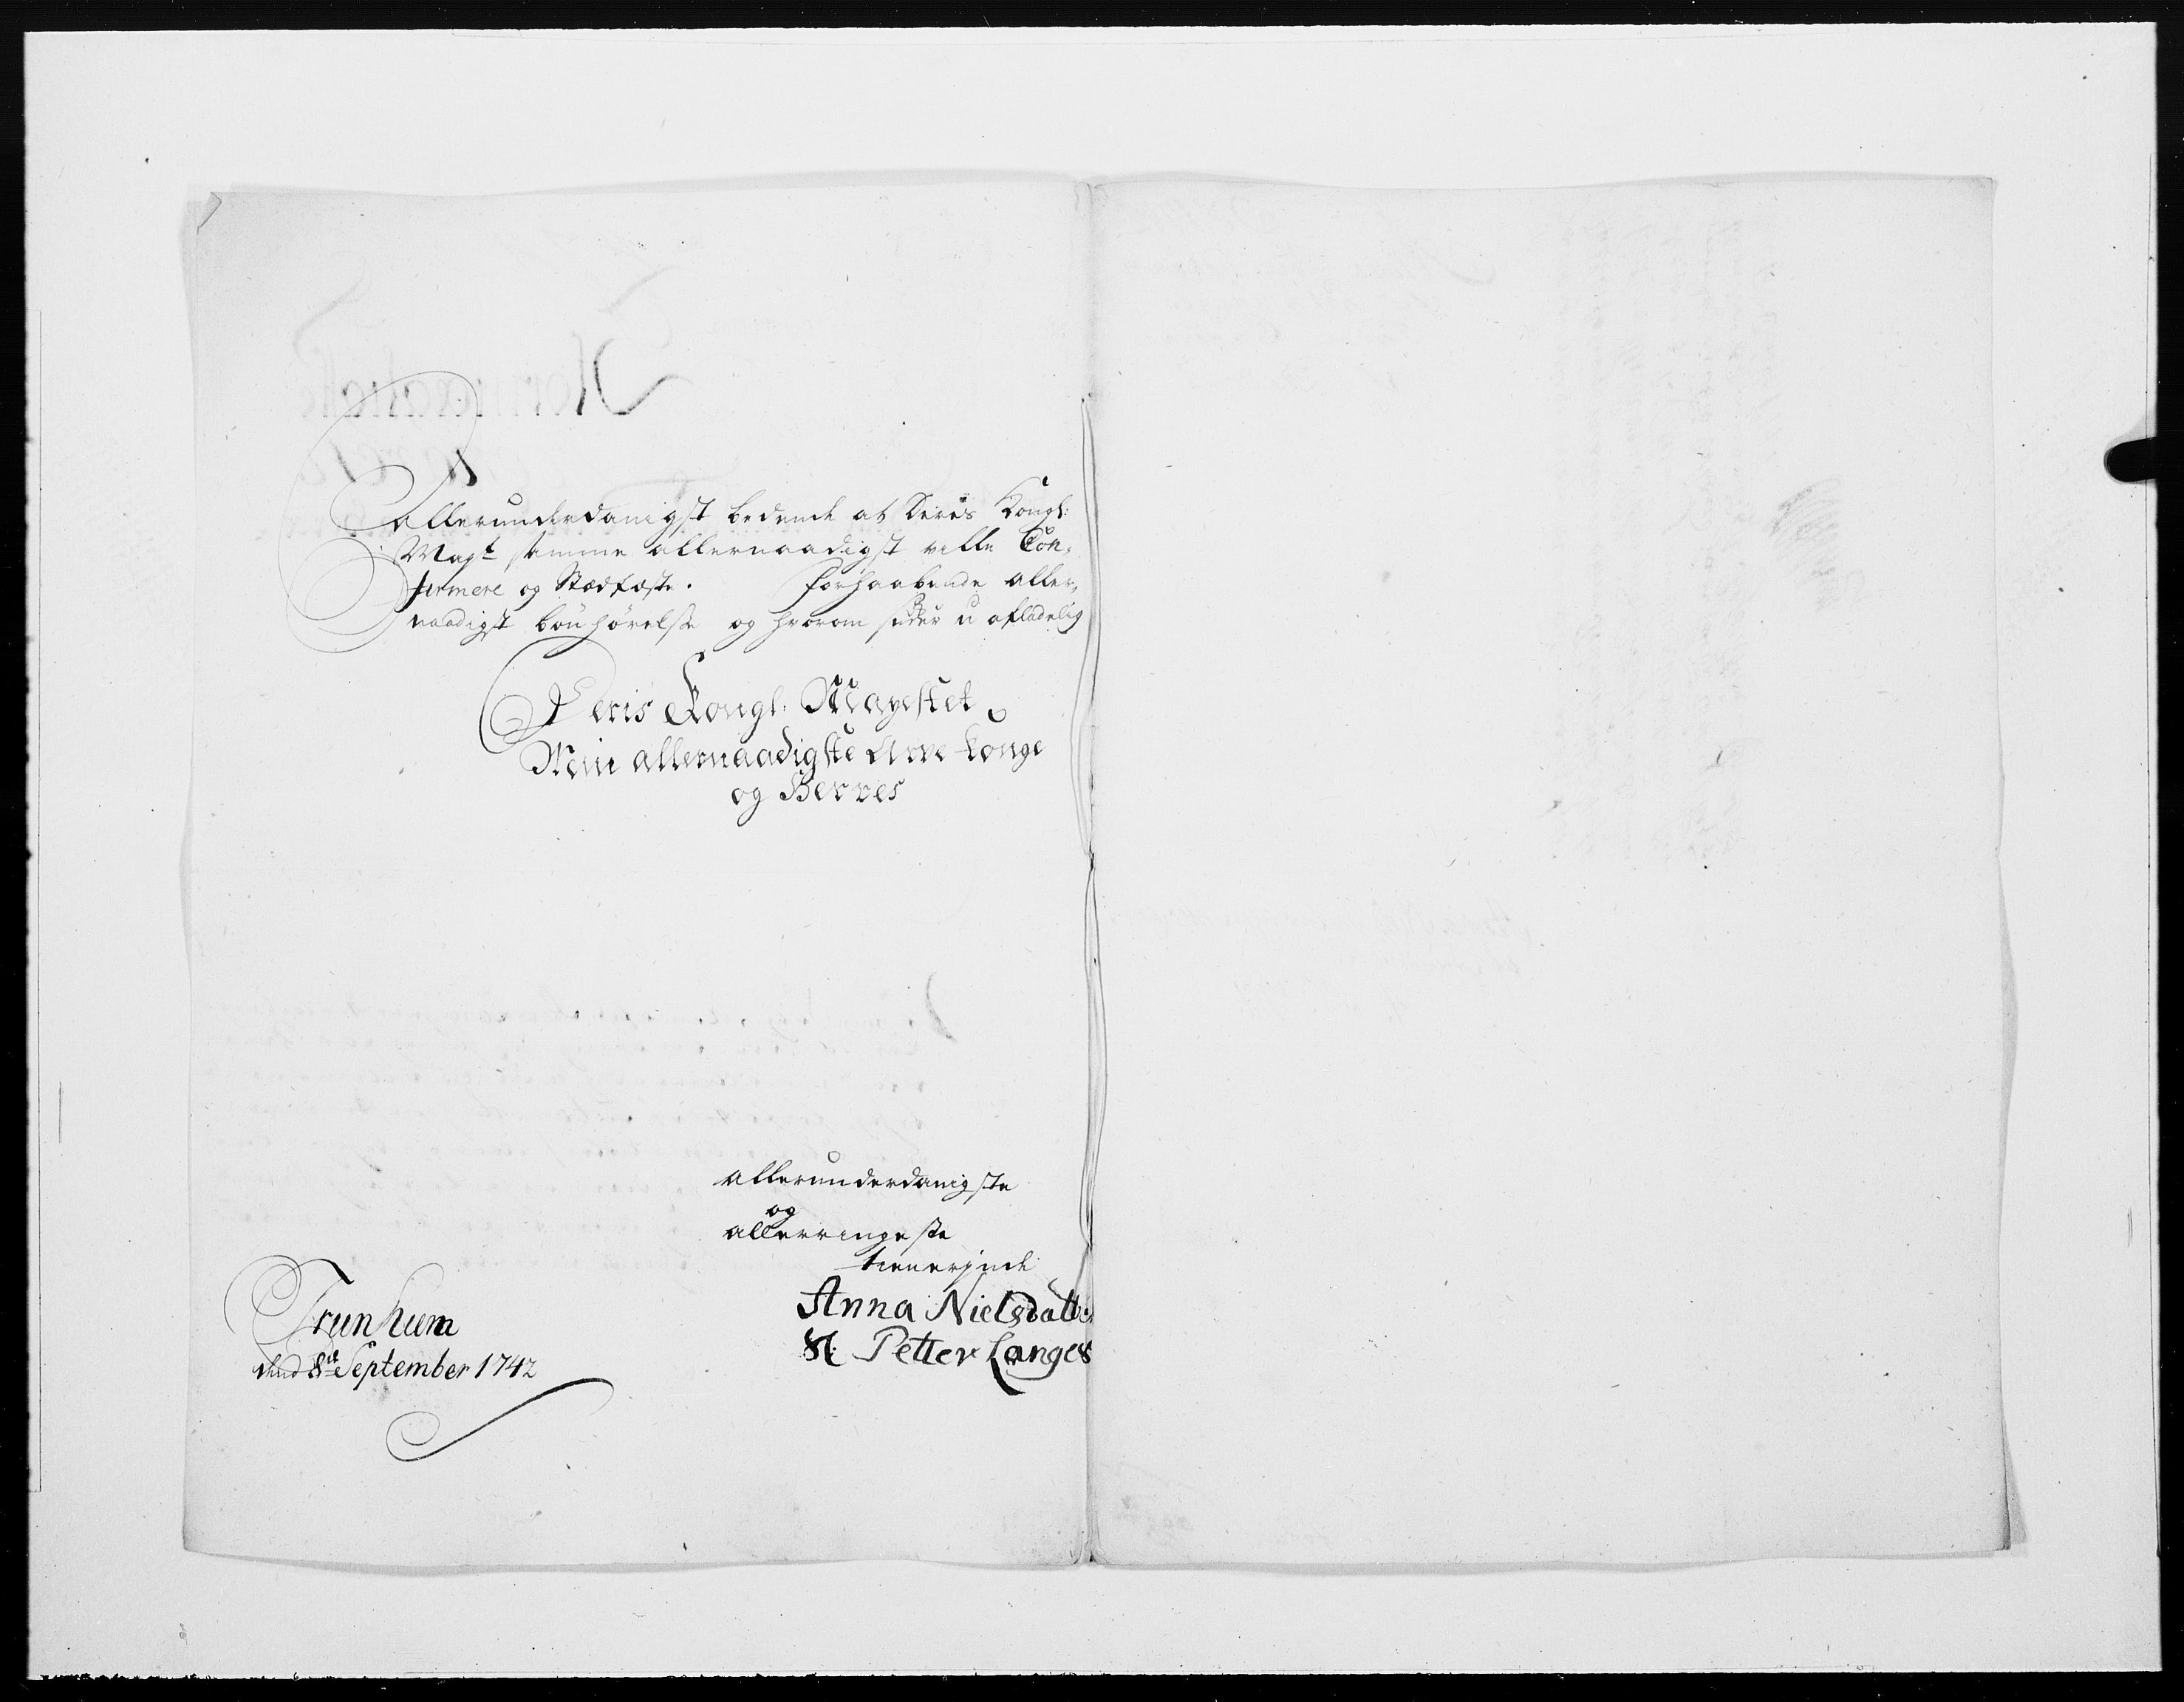 Allerunderdanigst bedende at Deris Kongl:
Mayt samme allernaadigst ville Con,
firmere og Stædfæste. forhaabende aller,
naadigst bönhörelse og hvorom u afladelig
Deris Kongl: Mayestet
Min allernaadigste Arve Konge
og Herres
allerunderdanigste
og
allerringeste
tienerinde
Anna Nielsdatter
Sl: Petter Langes
Trunhiem
dend 8de September 1742